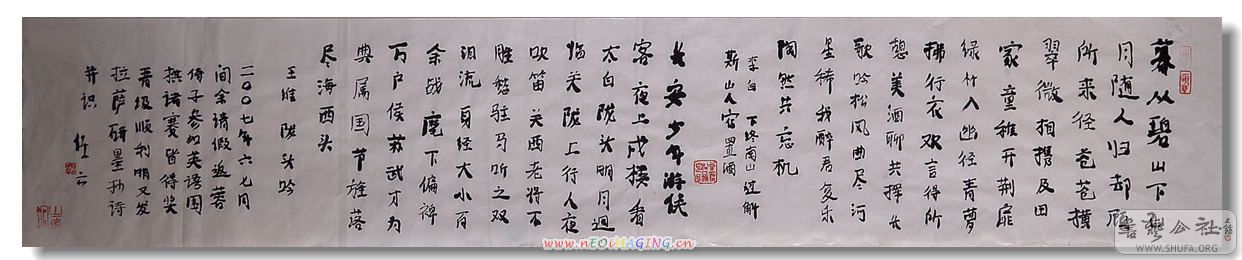 暮从碧山下山
月随人归却顾
所来径苍苍横
翠微相携及田
家童稚开荆扉
绿竹入幽径青萝
拂行衣欢言得所
憩美酒聊共挥长
歌吟松风曲尽河
星稀我醉君复乐
陶然共忘机
李白 下终南山过斛
斯山人宿置酒
长安少年游侠
客夜上戍楼看
太白陇头明月迥
临关陇上行人夜
吹笛关西老将不
胜愁驻马听之双
泪流身经大小百
余战麾下偏裨
万户侯苏武才为
典属国节旄落
尽海西头
王维 陇头吟
二〇〇七年六七月
间余请假返蓉
子参加英语围
棋诸赛皆得奖
晋级顺利明又发
拉萨研墨抄诗
并识
www.nEOiMAGING.cn
书法公社
WWW.SHUFA.ORG